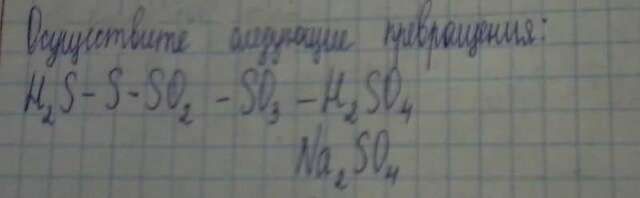 Осуществите следующие превращения:
H₂S - S - SO₂ - SO₃ - H₂SO₄
Na₂SO₄